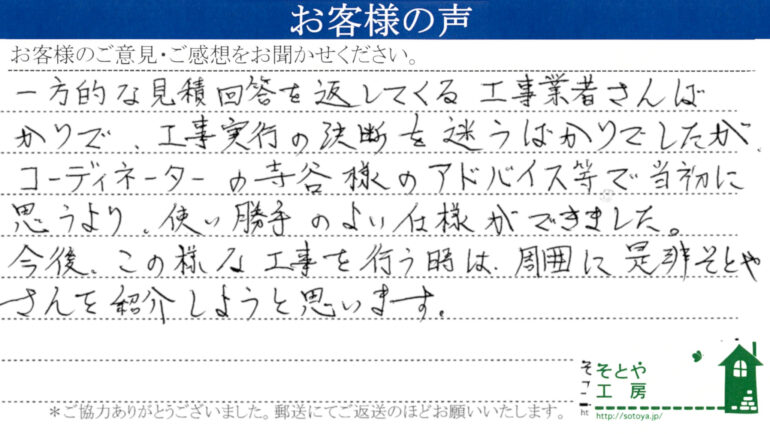 お客様の声
お客様のご意見・ご感想をお聞かせください。
一方的な見積回答を返してくる工事業者さんば
かりで、工事実行の決断を迷うばかりでしたが、
コーディネーターの寺谷様のアドバイス等で当初に
思うより、使い勝手のよい仕様ができました。
今後、この様な工事を行う時は、周囲に是非そとや
さんを紹介しようと思います。
そとや
工房
http://sotoya.jp/
*ご協力ありがとうございました。郵送にてご返送のほどお願いいたします。